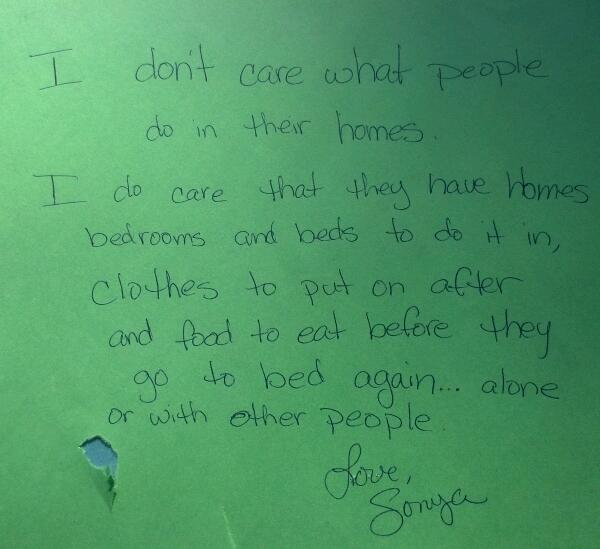 I don't care what people
do in their homes.
I do care that they have homes
bedrooms and beds to do it in,
clothes to put on after
and food to eat before they
go to bed again... alone
or with other people.
Love,
Sonya